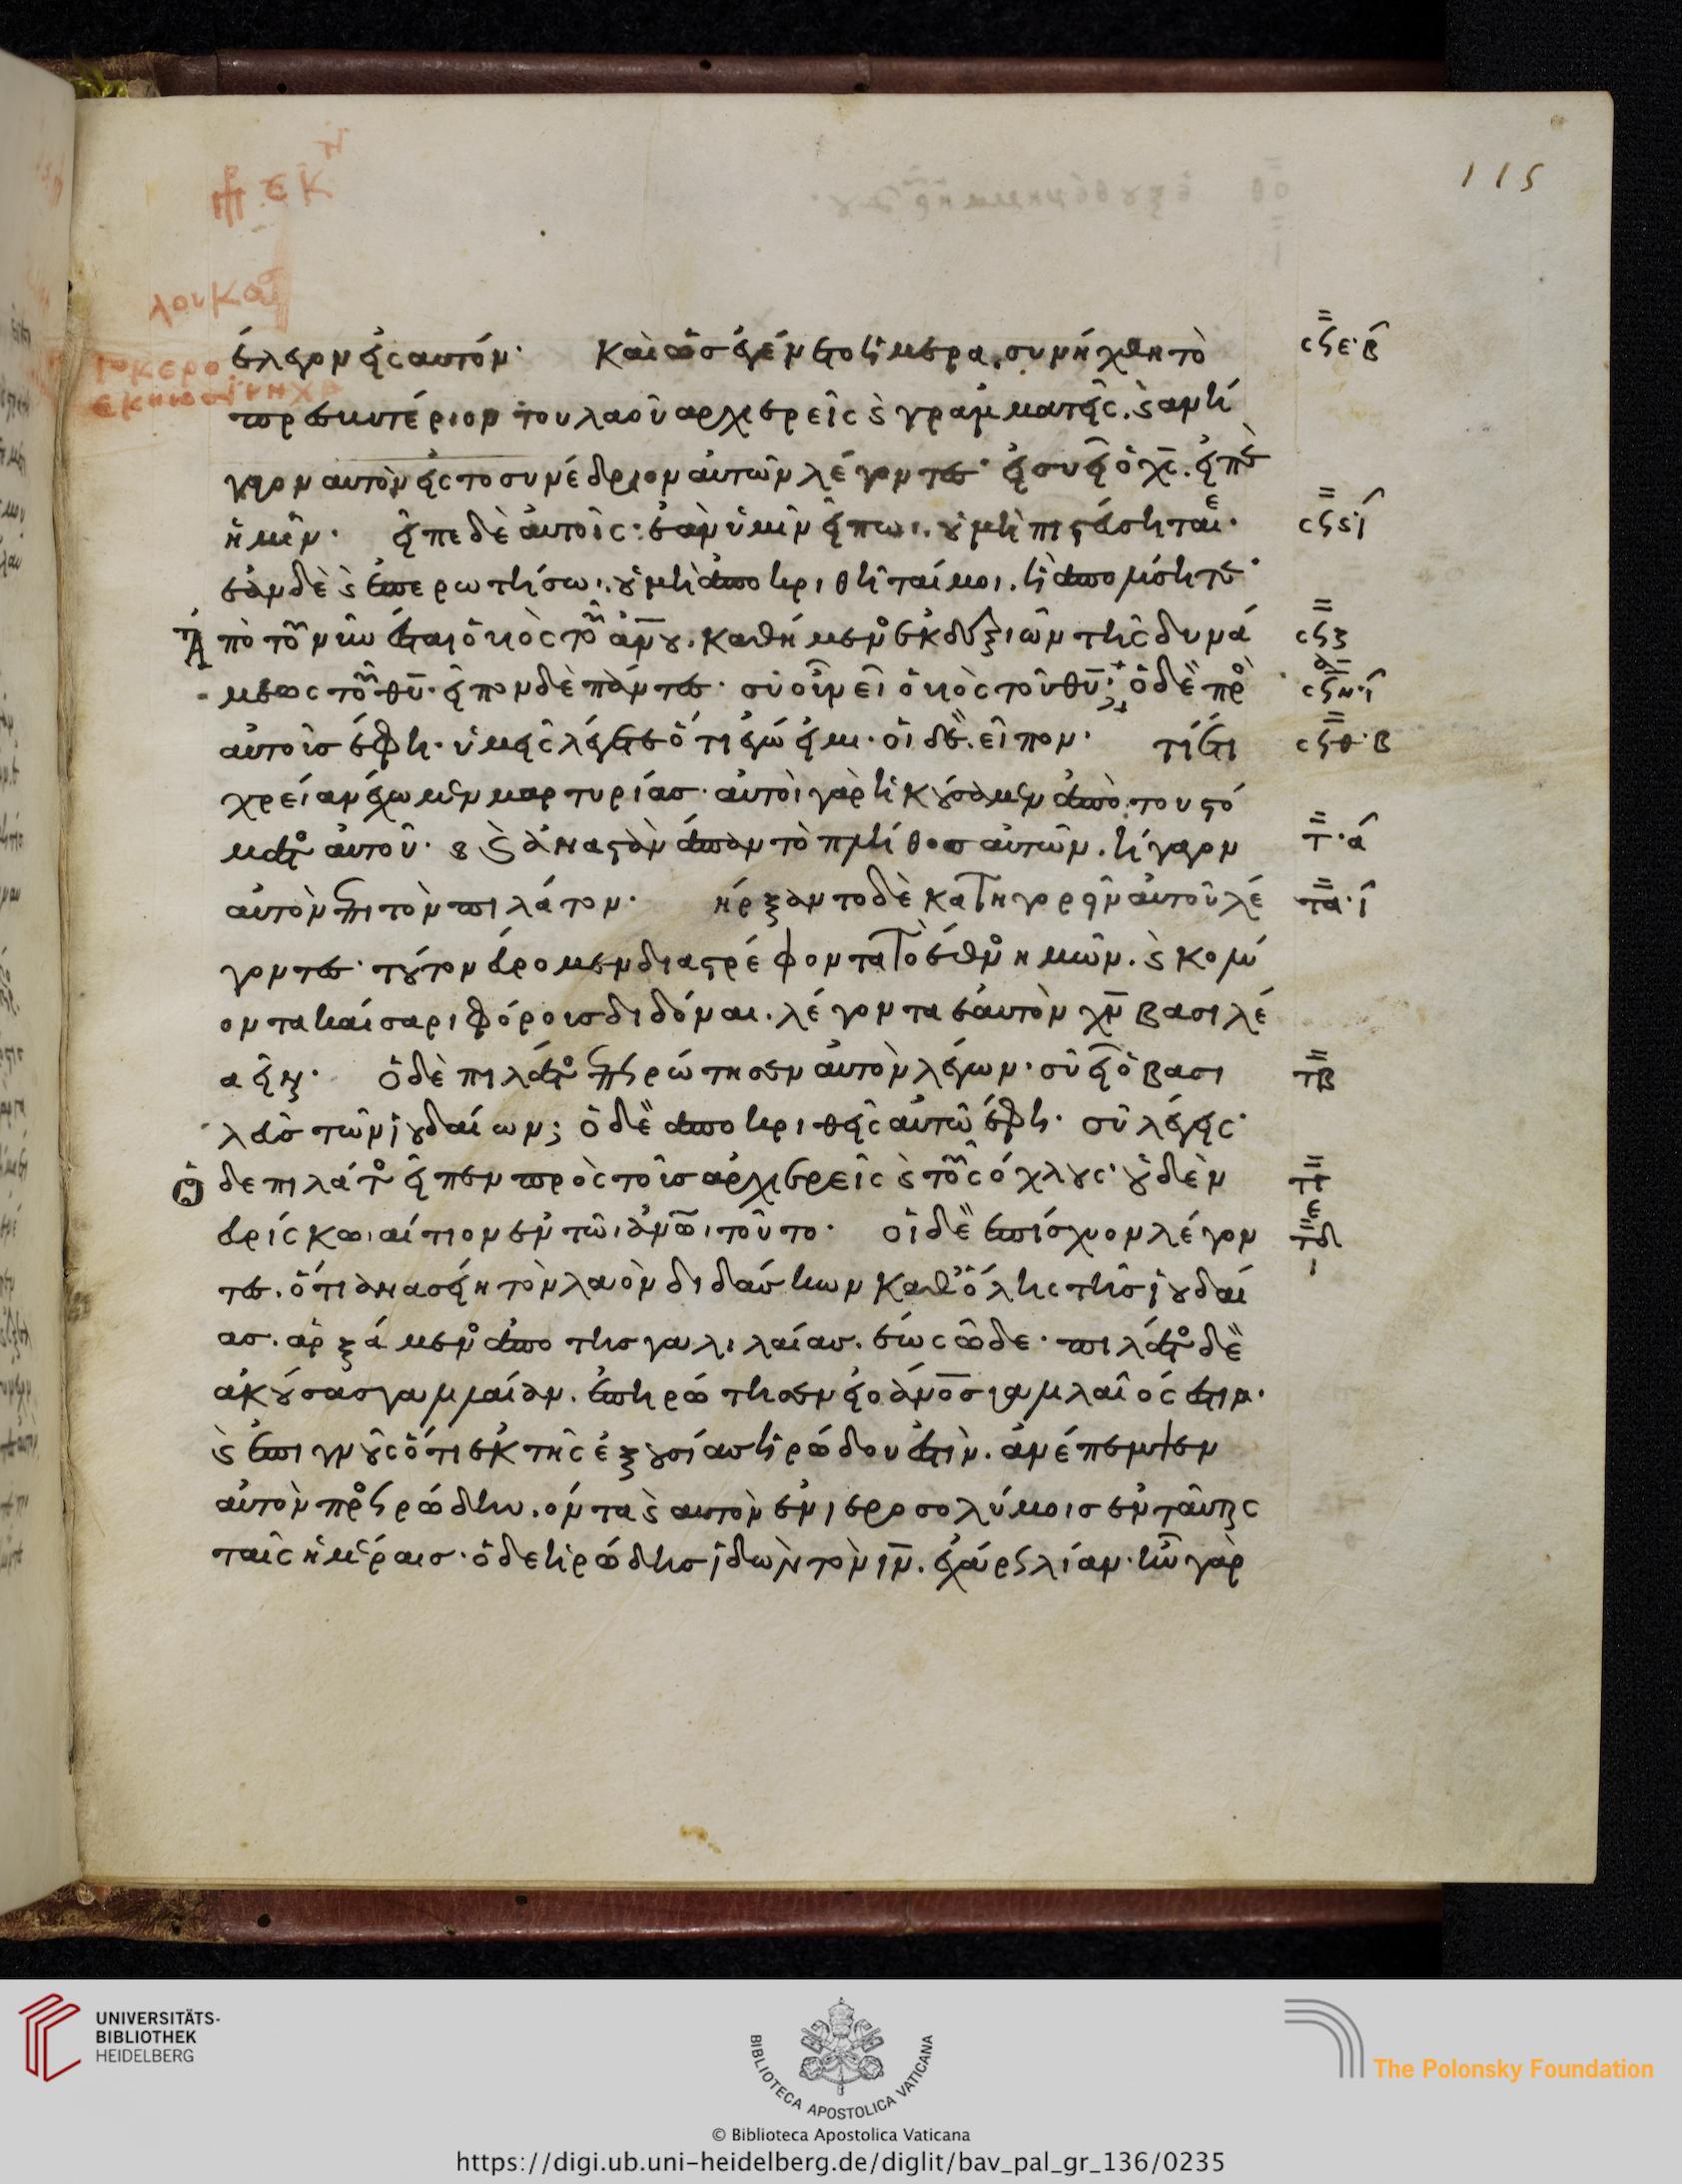 115
λουκα
έλεγον εἰς αυτόν· Καὶ ὡσ ἐγένετο ἡμερα, συνήχθη τὸ
πρεσβυτέριον του λαοῦ αρχιερεῖς ϗ γραμματεῖς. ϗ ανή
γαγον αυτὸν εἰς το συνέδριον αὐτῶν λέγοντες· εἰ συ εἶ ὁ χ̅ς̅. εἰπὲ
ἡμῖν· εἶπε δὲ ἀυτοῖς· ἐὰν ὑμῖν εἴπω. ου μὴ πιστεύσηται·
ἐὰν δὲ ϗ ἐπερωτήσω. ου μὴ ἀποκριθῆταί μοι. ἢ ἀπολύσητε·
Ἀπὸ τοῦ νῦν ἔσται ὁ υιὸς τοῦ ἀν̅ου. καθήμενος ἐκ δεξιῶν τῆς δυνά
μεως τοῦ θ̅υ̅· εἶπον δὲ πάντες· σὺ οὖν εῖ ὁ υιὸς τοῦ θ̅υ̅; ὁ δὲ πρὸς
αὐτοὺσ ἔφη· ὑμεῖς λέγετε ὅτι ἐγώ εἰμι· οἱ δὲ εἶπον· τί ἔτι
χρείαν έχωμεν μαρτυρίασ· αὐτοὶ γὰρ ἠκούσαμεν ἀπὸ του στό
ματος αὐτοῦ· ϗ ἀναστὰν ἅπαν τὸ πλήθοσ αὐτῶν. ἤγαγον
αὐτὸν ἐπι τὸν πιλάτον· ἤρξαντο δὲ κατηγορεῖν αὐτοῦ λέ
γοντες· τοῦτον εὕρομεν διαστρέφοντα τὸ έθνος ἡμῶν. ϗ κωλύ
οντα καίσαρι φόρουσ διδόναι. λέγοντα ἑαυτὸν χ̅ν̅ βασιλέ
α εἶναι· ὁ δὲ πιλάτος ἐπηρώτησεν αὐτὸν λέγων· σὺ εἶ ὁ βασι
λεὺσ τῶν ἰουδαίων; ὁ δὲ ἀποκριθεῖς αὐτῶ έφη· σὺ λέγεις·
Ὁ δε πιλάτος εἶπεν πρὸς τοὺσ ἀρχιερεῖς ϗ τοὺς όχλους· ουδὲν
ευρίσκω αίτιον ἐν τῶ ἀν̅ω τούτο· οἱ δὲ ἐπίσχυον λέγον
τες. ὅτι ἀνασείη τὸν λαὸν διδάσκων καθ' ὅλης τῆσ ἰουδαί
ασ. ἀρξάμενος ἀπο τησ γαλιλαίασ. έως ὧδε· πιλάτος δὲ
ἀκούσασ γαλιλαίαν. ἐπηρώτησεν εἰ ὁ ἀν̅οσ γαλιλαῖός ἐστιν·
ϗ ἐπιγνοὺς ὅτι ἐκ τῆς ἐξουσίασ ἡρώδου ἐστὶν. ἀνέπεμψεν
αὐτὸν πρὸς ἡρώδην. όντα ϗ αυτὸν ἐν ἱεροσολύμοισ ἐν ταύταις
ταῖς ἡμέραισ· ὁ δε ἡρώδησ ἰδὼν τὸν ι̅ν̅. ἐχάρη λίαν· ἦν γὰρ
UNIVERSITÄTS-
BIBLIOTHEK
HEIDELBERG
BIBLIOTECA APOSTOLICA VATICANA
The Polonsky Foundation
© Biblioteca Apostolica Vaticana
https://digi.ub.uni-heidelberg.de/diglit/bav_pal_gr_136/0235